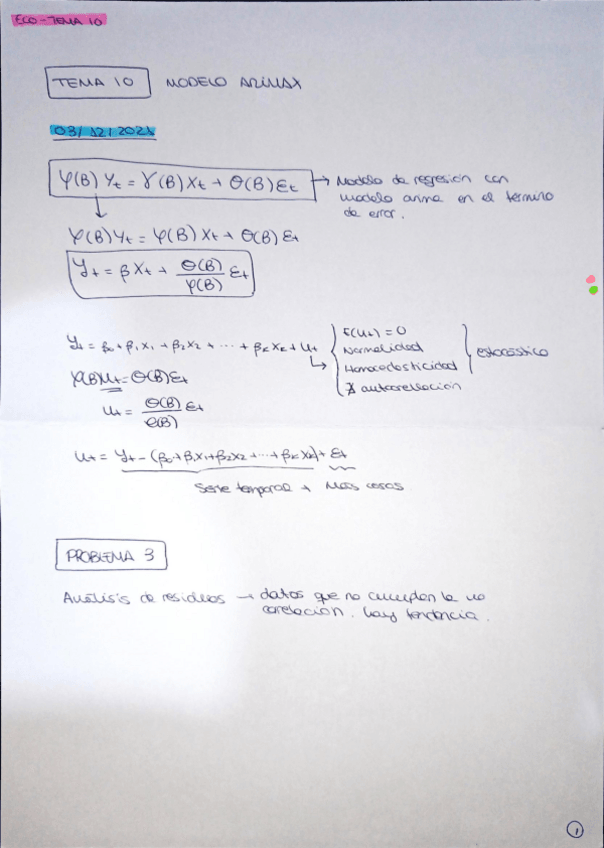 ECO-TEMA 10
TEMA 10 MODELO ARIMAX
03/12/2021
φ(B) Yt = γ(B) Xt + Θ(B) Ɛt → Modelo de regresión con
modelo arma en el término
de error.
φ(B) Yt = φ(B) Xt + Θ(B) Ɛt
Yt = β Xt + Θ(B)/φ(B) Ɛt
Yt = β0 + β1 X1 + β2 X2 + ... + βK XK + Ut
E(Ut) = 0
Normalidad
Homocedasticidad
∄ autocorrelación
estocástico
φ(B) Ut = Θ(B) Ɛt
Ut = Θ(B)/φ(B) Ɛt
Ut = Yt - (β0 + β1 X1 + β2 X2 + ... + βK XK) + Ɛt
Serie temporal + Más cosas
PROBLEMA 3
Análisis de residuos → datos que no cumplen la no
correlación. hay tendencia.
1